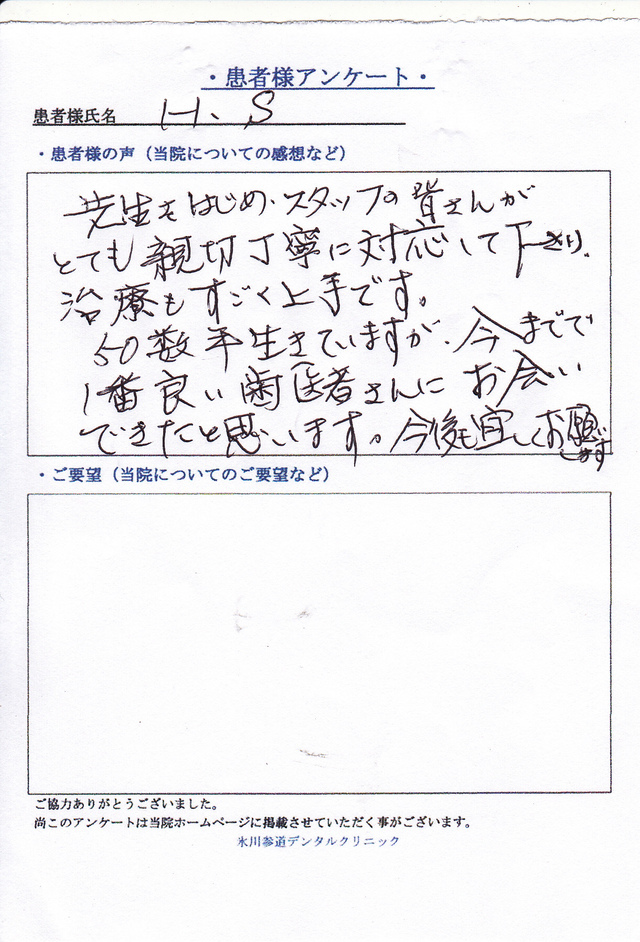 ・患者様アンケート・
患者様氏名 H. S
・患者様の声（当院についての感想など）
先生をはじめ、スタッフの皆さんが
とても親切丁寧に対応して下さり、
治療もすごく上手です。
50数年生きていますが、今までで
1番良い歯医者さんにお会い
できたと思います。今後も宜しくお願い
します
・ご要望（当院についてのご要望など）
ご協力ありがとうございました。
尚このアンケートは当院ホームページに掲載させていただく事がございます。
氷川参道デンタルクリニック